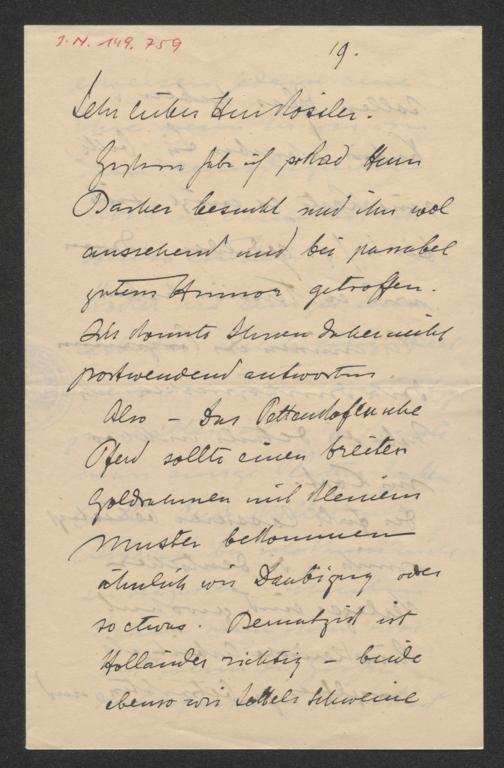 J. N. 149.759
19.
Sehr lieber Herr Rössler.
Gestern habe ich per Rad Herrn
Barker besucht und ihn wol
aussehend und bei passabel
gutem Humor getroffen.
Ich konnte Ihnen daher nicht
postwendend antworten.
Also – Das Pettenkofensche
Pferd sollte einen breiten
Goldrahmen mit kleinem
Muster bekommen
ähnlich wie Daubigny oder
so etwas. ist
Holländer richtig – beide
ebenso wie Lettels Schweine